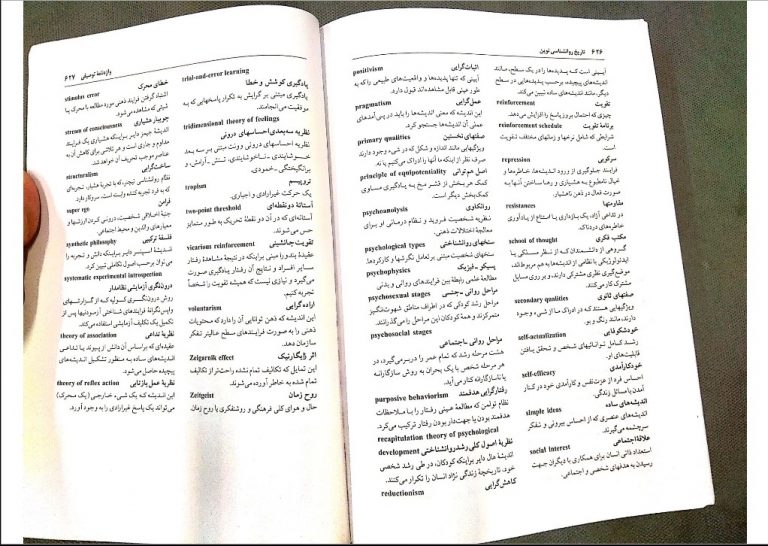 ۶۲۶ تاریخ روانشناسی نوین
positivism
اثبات‌گرایی
آیینی که تنها پدیده‌ها و واقعیت‌های طبیعی را که به
طور عینی قابل مشاهده‌اند قبول دارد.
pragmatism
عمل‌گرایی
این اندیشه که معنی اندیشه‌ها را باید در پی‌آمدهای
عملی آن اندیشه‌ها جستجو کرد.
primary qualities
صفتهای نخستین
ویژگیهایی مانند اندازه و شکل که در شیء وجود دارند
صرف نظر از اینکه ما آنها را ادراک می‌کنیم یا نه.
principle of equipotentiality
اصل هم‌توانی
کمک هر بخش از قشر مخ به یادگیری مساوی
کمک بخش دیگر است.
psychoanalysis
روانکاوی
نظریه شخصیت فروید و نظام درمانی او برای
معالجهٔ اختلالات ذهنی.
psychological types
سنخهای روانشناختی
سنخهای شخصیت مبتنی بر تعامل نگرشها و کارکردها.
psychophysics
پسیکو ـ فیزیک
مطالعهٔ علمی رابطهٔ بین فرایندهای روانی و بدنی
psychosexual stages
مراحل روانی ـ جنسی
مراحل رشد کودکی که در اطراف مناطق شهوت‌انگیز
متمرکزند و همهٔ کودکان این مراحل را می‌گذرانند.
psychosocial stages
مراحل روانی ـ اجتماعی
هشت مرحله رشد که تمام عمر را دربرمی‌گیرد، در
هر مرحله شخص با یک بحران به روش سازگارانه
یا ناسازگارانه کنار می‌آید.
purposive behaviorism
رفتارگرایی هدفمند
نظام تولمن که مطالعهٔ عینی رفتار را با ملاحظات
هدفمند بودن یا جهت‌دار بودن رفتار ترکیب می‌کرد.
recapitulation theory of psychological
development
نظریهٔ اصول کلی رشد روانشناختی
اندیشهٔ هال دایر براینکه کودکان، در طی رشد شخصی
خود، تاریخچهٔ زندگی نژاد انسان را تکرار می‌کنند.
reductionism
کاهش‌گرایی
آیینی است که پدیده‌ها را در یک سطح، مانند
اندیشه‌های پیچیده، برحسب پدیده‌هایی در سطح
دیگر، مانند اندیشه‌های ساده تبیین می‌کند.
reinforcement
تقویت
چیزی که احتمال بروز پاسخ را افزایش می‌دهد.
reinforcement schedule
برنامهٔ تقویت
شرایطی که شامل نرخها و زمانهای مختلف تقویت
است.
repression
سرکوبی
فرایند جلوگیری از ورود اندیشه‌ها، خاطره‌ها و
امیال نامطبوع به هشیاری و رها ساختن آنها به
صورت فعال در ذهن ناهشیار.
resistances
مقاومتها
در تداعی آزاد، یک بازداری یا امتناع از یادآوری
خاطره‌های دردناک.
school of thought
مکتب فکری
گروهی از دانشمندان که از نظر مسلکی یا
ایدئولوژیکی با نظامی از اندیشه‌ها به هم مربوط‌اند،
موضع‌گیری نظری مشترکی دارند، و بر روی مسایل
مشترک کار می‌کنند.
secondary qualities
صفتهای ثانوی
ویژگیهایی هستند که در ادراک ما از شیء وجود
دارند، مانند رنگ و بو.
self-actualization
خودشکوفایی
رشد کامل توانائیهای شخص و تحقق یافتن
قابلیت‌های او.
self-efficacy
خودکارآمدی
احساس فرد از عزت‌نفس و کارآمدی خود در کنار
آمدن با مسائل زندگی.
simple ideas
اندیشه‌های ساده
اندیشه‌های عنصری که از احساس بیرونی و تفکر
سرچشمه می‌گیرند.
social interest
علاقهٔ اجتماعی
استعداد ذاتی انسان برای همکاری با دیگران جهت
رسیدن به هدفهای شخصی و اجتماعی.
واژه‌نامهٔ توصیفی ۶۲۷
stimulus error
خطای محرک
اشتباه گرفتن فرایند ذهنی مورد مطالعه با محرک یا
شیئی که مشاهده می‌شود.
stream of consciousness
جویبار هشیاری
اندیشهٔ جیمز دایر براینکه هشیاری یک فرایند
مداوم و جاری است و هر تلاشی برای کاهش آن به
عناصر موجب تحریف آن خواهد شد.
structuralism
ساخت‌گرایی
نظام روانشناسی تیچنر، که با تجربهٔ هشیار، تجربه‌ای
که به فرد تجربه کننده وابسته است، سروکار دارد.
super ego
فرامن
جنبهٔ اخلاقی شخصیت، درونی کردن ارزشها و
معیارهای والدین و محیط اجتماعی.
synthetic philosophy
فلسفهٔ ترکیبی
اندیشهٔ اسپنسر دایر براینکه دانش و تجربه را
می‌توان برحسب اصول تکاملی تبیین کرد.
systematic experimental introspection
درون‌نگری آزمایشی نظامدار
روش درون‌نگری کولپه که از گزارشهای
واپس‌نگرانهٔ فرایندهای شناختی آزمودنیها پس از
تکمیل یک تکلیف آزمایشی استفاده می‌کند.
theory of association
نظریهٔ تداعی
عقیده‌ای که براساس آن دانش از پیوند یا تداعی
اندیشه‌های ساده به منظور تشکیل اندیشه‌های
پیچیده حاصل می‌شود.
theory of reflex action
نظریهٔ عمل بازتابی
این اندیشه که یک شیء خارجی (یک محرک)
می‌تواند یک پاسخ غیرارادی را به وجود آورد.
trial-and-error learning
یادگیری کوشش و خطا
یادگیری مبتنی بر گرایش به تکرار پاسخهایی که به
موفقیت می‌انجامند.
tridimensional theory of feelings
نظریه سه‌بعدی احساسهای درونی
نظریه احساسهای درونی وونت مبنی بر سه بعد
خوشایندی ـ ناخوشایندی، تنش ـ آرامش، و
برانگیختگی ـ خمودی.
tropism
تروپیسم
یک حرکت غیرارادی و اجباری.
two-point threshold
آستانهٔ دونقطه‌ای
آستانه‌ای که در آن دو نقطهٔ تحریک به طور متمایز
حس می‌شوند.
vicarious reinforcement
تقویت جانشینی
عقیدهٔ بندورا مبنی براینکه در نتیجهٔ مشاهدهٔ رفتار
سایر افراد و نتایج آن رفتار یادگیری صورت
می‌گیرد و نیازی نیست که همیشه تقویت را شخصاً
تجربه کنیم.
voluntarism
اراده‌گرایی
این اندیشه که ذهن توانایی آن را دارد که محتویات
ذهنی را به صورت فرایندهای سطح عالیتر تفکر
سازمان دهد.
Zeigarnik effect
اثر زایگارنیک
این تمایل که تکالیف تمام نشده راحت‌تر از تکالیف
تمام شده به خاطر آورده می‌شوند.
Zeitgeist
روح زمان
حال و هوای کلی فرهنگی و روشنفکری یا روح زمان.